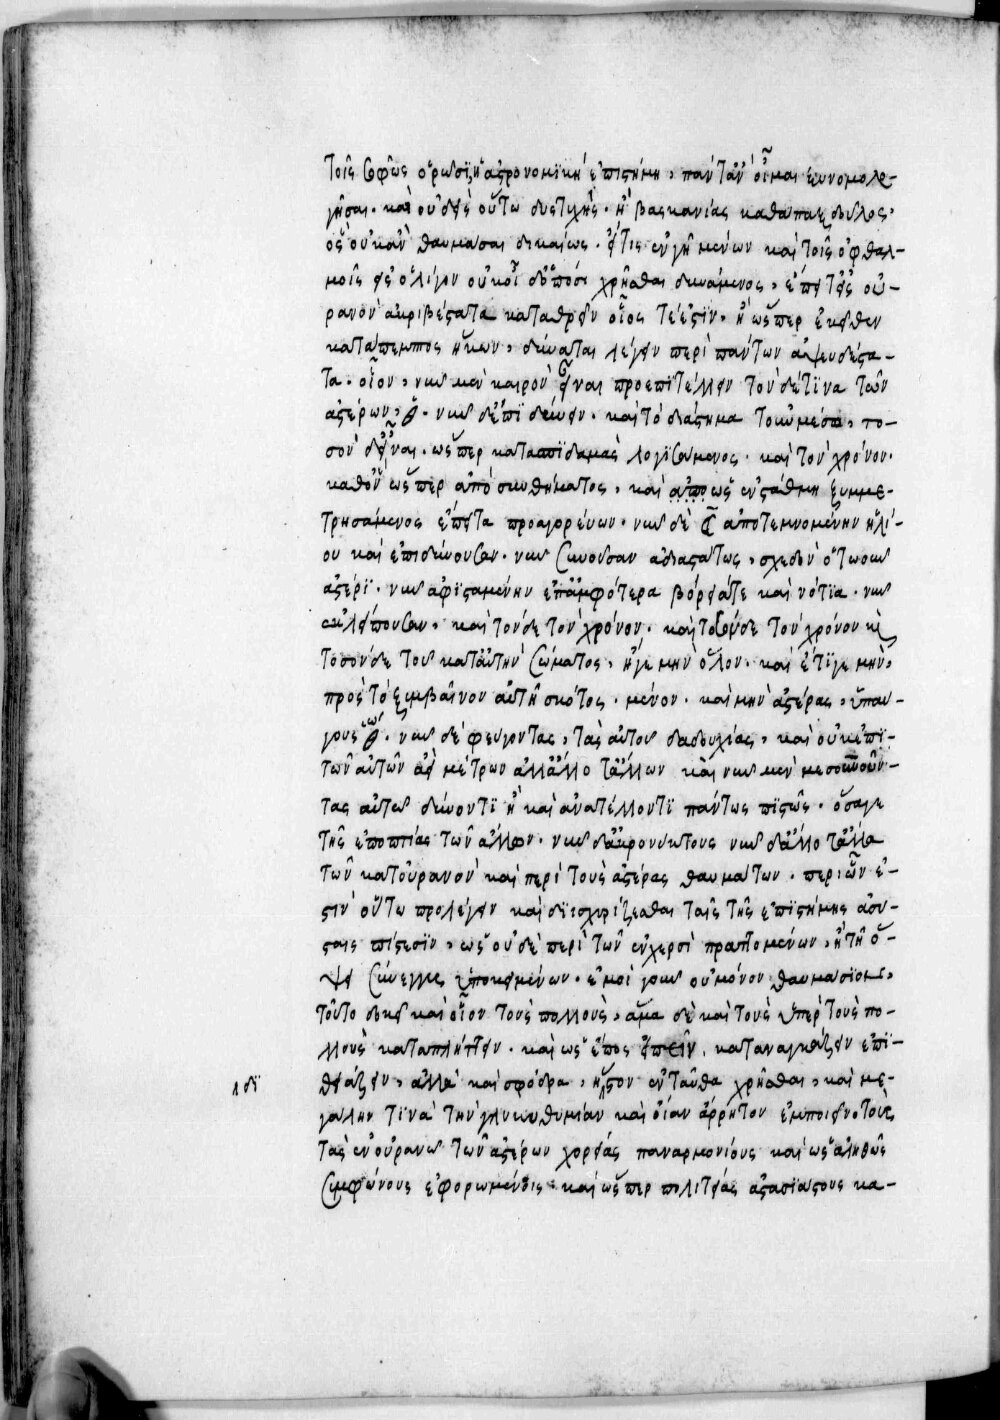 τοῖς σοφῶς ὁρῶσιν, ἡ ἀστρονομικὴ ἐπιστήμη, πάντ' ἂν οἶμαι ξυνομολο-
γῆσαι. καὶ οὐδεὶς οὕτω δυστυχὴς. ἢ βασκανίας καθάπαξ δοῦλος,
ὃς οὐκ ἂν θαυμάσαι δικαίως. εἴ τις ἐν γῇ μένων καὶ τοῖς ὀφθαλ-
μοῖς ἐς ὀλίγον χρῆσθαι δυνάμενος, ἔπειτ' ἐς οὐ-
ρανὸν ἀκριβέστατα καταθρεῖν οἷός τέ ἐστιν. ἢ ὥσπερ ἐκεῖθεν
κατάπεμπτος ἥκων, δύναται λέγειν περὶ πάντων ἀψευδέστα-
τα. οἷον, νῦν μὲν καιρὸν εἶναι προεπιτέλλειν τὸν δέ τινα τῶν
ἀστέρων, νῦν δ' ἐπιδύειν. καὶ τὸ διάστημα τοῦ μέσου, το-
σὸν δ' εἶναι. ὥσπερ κατὰ σπιθαμὰς λογιζόμενος. καὶ τὸν χρόνον.
καθ' ὃν ὥσπερ ἀπὸ συνθήματος, καὶ ὡς ἐν στάθμῃ ξυμμε-
τρησάμενος ἔπειτα προαγορεύων. νῦν δὲ ☾ ἀποτεμνομένην ἡλί-
ου καὶ ἐπιδύνουσαν. νῦν συνοῦσαν ἀδιαστάτως, σχεδὸν ὁτωοῦν
ἀστέρι. νῦν ἀφισταμένην ἐπ' ἀμφότερα βόρειά τε καὶ νότια. νῦν
ἐκλείπουσαν, καὶ τόνδε τὸν χρόνον. τὸν χρόνον καὶ
τοσόνδε τοῦ κατ' αὐτὴν σώματος, ἤγε μὴν ὅλον. καὶ ἔτι γε μὴν,
πρὸς τὸ ξυμβαῖνον αὐτῇ σκότος. μένον. καὶ μὴν ἀστέρας, ὑπαυ-
γους νῦν δὲ φεύγοντας, τὰς αὐτοῦ δᾳδουχίας, καὶ οὐκ ἐπὶ
τῶν αὐτῶν ἀεὶ μέτρων ἀλλ' ἄλλο τἄλλων καὶ νῦν μὲν
τας αὐτῶ δύνοντι ἢ καὶ ἀνατέλλοντι πάντως πιστῶς. ὅσαγε
τῆς ἐποπτίας τῶν ἄλλων. νῦν δ' ἀκρονύκτους νῦν δ' ἄλλο τἄλλα
τῶν κατ' οὐρανὸν καὶ περὶ τοὺς ἀστέρας θαυμάτων. περὶ ὧν ἔ-
στιν οὕτω προλέγειν καὶ διισχυρίζεσθαι ταῖς τῆς ἐπιστήμης ἀσύ-
λοις πίστεσιν, ὡς οὐδὲ περὶ τῶν ἐν χερσὶ πραττομένων, ἢ τῇ ὄ-
ψει σύνεγγυς ὑποκειμένων. ἐμοὶ γοῦν οὐ μόνον θαυμάσιον,
τοῦτο δοκεῖ καὶ οἷον τοὺς πολλοὺς, ἅμα δὲ καὶ τοὺς ὑπὲρ τοὺς πο-
λλοὺς καταπλήττειν. καὶ ὡς ἔπος εἰπεῖν. καταναγκάζειν ἐπι-
θειάζειν, ἀλλὰ καὶ σφόδρα, ἥδιστον ἐνταῦθα χρῆσθαι, καὶ με-
γάλην τινὰ τὴν γλυκυθυμίαν καὶ οἵαν ἄρρητον ἐμποιεῖν τοῖς
τὰς ἐν οὐρανῶ τῶν ἀστέρων χορείας παναρμονίους καὶ ὡς ἀληθῶς
συμφώνους ἐφορωμένοις. καὶ ὥσπερ πολιτείας ἀστασιάστους κα-